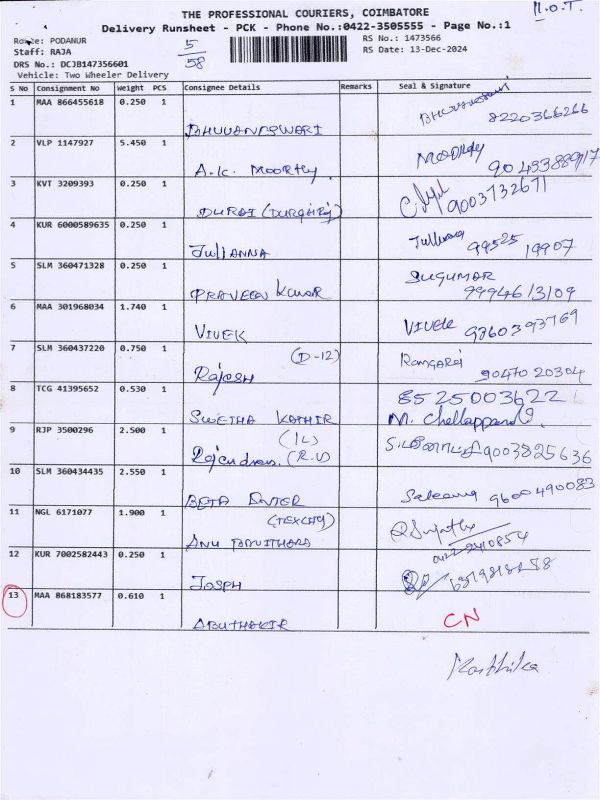 THE PROFESSIONAL COURIERS, COIMBATORE
M.O.T.
Delivery Runsheet - PCK - Phone No.:0422-3505555 - Page No.:1
Route: PODANUR
5/58
RS No.: 1473566
Staff: RAJA
RS Date: 13-Dec-2024
DRS No.: DCJB147356601
Vehicle: Two Wheeler Delivery
S No Consignment No Weight PCS Consignee Details Remarks Seal & Signature
1 MAA 866455618 0.250 1 BHUVANESWARI 8220366266
2 VLP 1147927 5.450 1 A.K. MOORTHY MOORTHY
3 KVT 3209393 0.250 1 DURAI 9003732671
4 KUR 6000589635 0.250 1 JuliANNA 99525 19907
5 SLM 360471328 0.250 1 PRAVEEN KUMAR SUGUMAR 9994613109
6 MAA 301968034 1.740 1 VIVEK VIVEK 9360393769
7 SLM 360437220 0.750 1 (D-12) Rajesh Rangaraj 90470 20304
8 TCG 41395652 0.530 1 SWETHA KATHIR 8525003622
M. Chellappan
9 RJP 3500296 2.500 1 (IL) Rajendran (R.V) 9003825636
10 SLM 360434435 2.550 1 BETA 9600490083
11 NGL 6171077 1.900 1 ANU Sujatha
0422 2410854
12 KUR 7002582443 0.250 1 JOSPH
13 MAA 868183577 0.610 1 ABUTHAKIR CN
Karthika